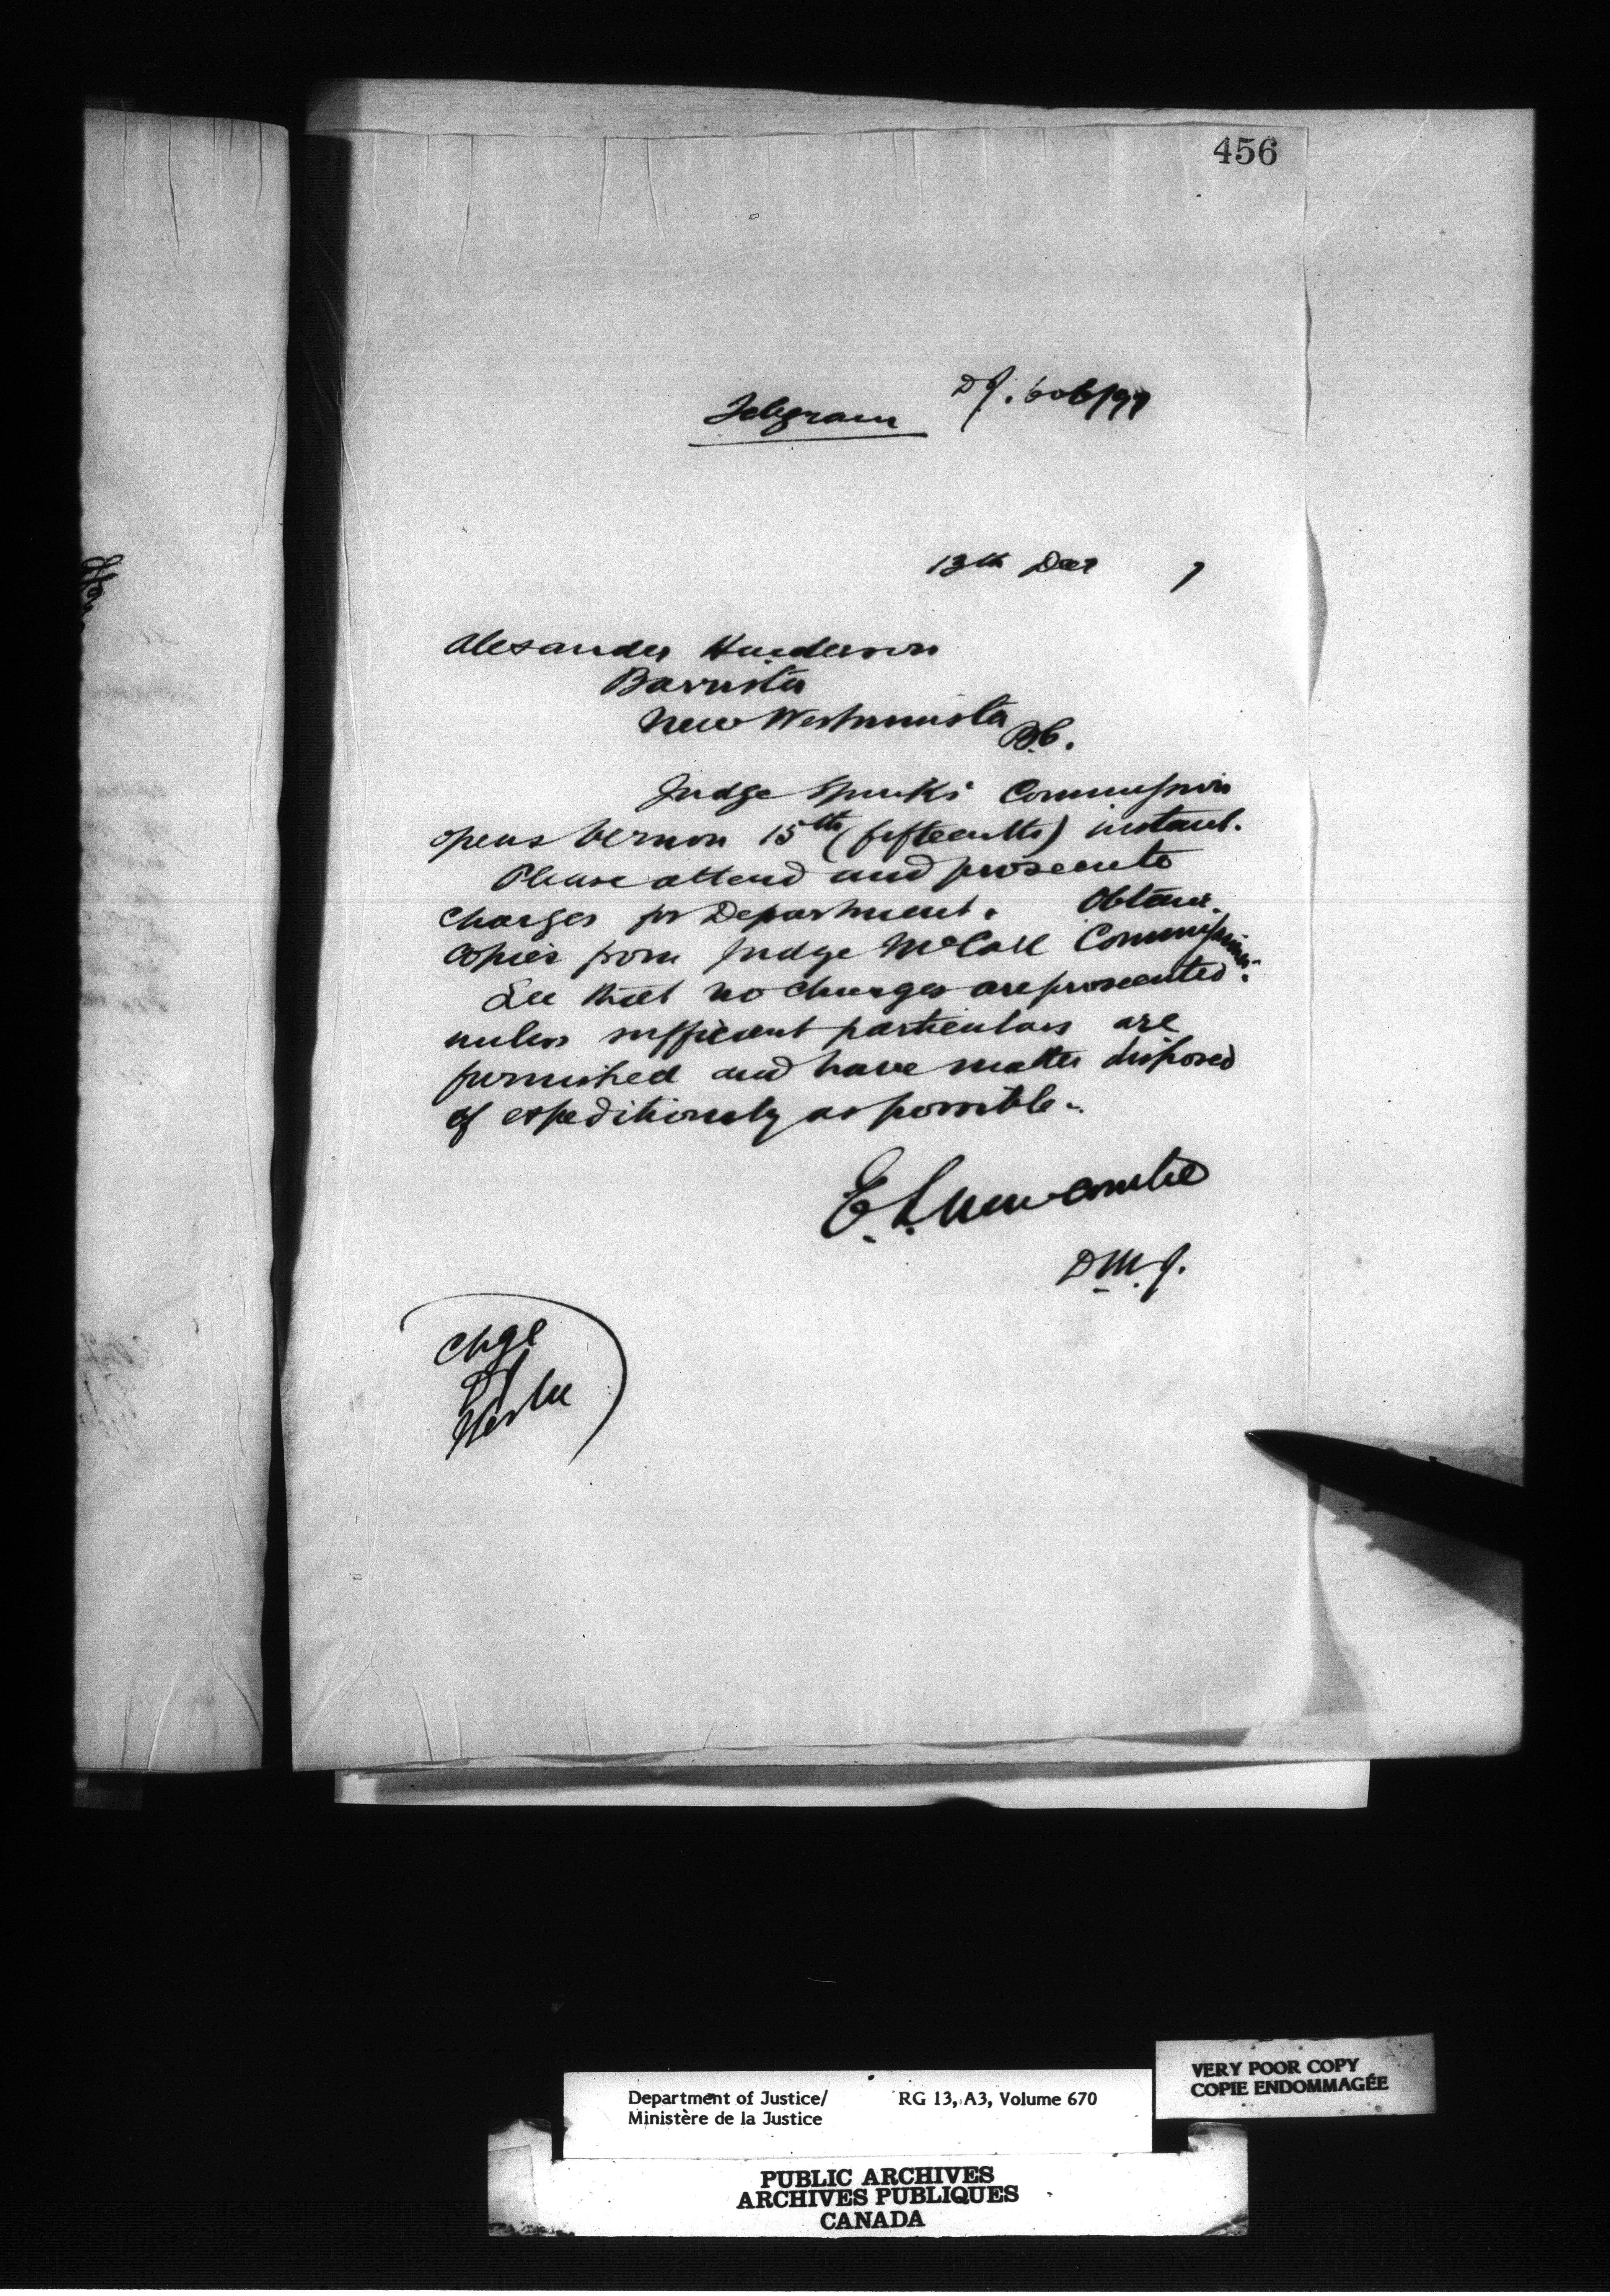 456
Telegram
DJ. 606/97
13th Decr 7
Alexander Henderson
Barrister
New Westminster
B.C.
Judge Spinks Commission
opens Vernon 15th (fifteenth) instant.
Please attend and prosecute
charges for Department. Obtain
copies from Judge McColl Commissioner.
See that no charges are prosecuted
unless sufficient particulars are
furnished and have matter disposed
of expeditiously as possible.
E. L. Newcombe
D.M.J.
Chge
DJ
Department of Justice/
Ministère de la Justice
RG 13, A3, Volume 670
VERY POOR COPY
COPIE ENDOMMAGÉE
PUBLIC ARCHIVES
ARCHIVES PUBLIQUES
CANADA